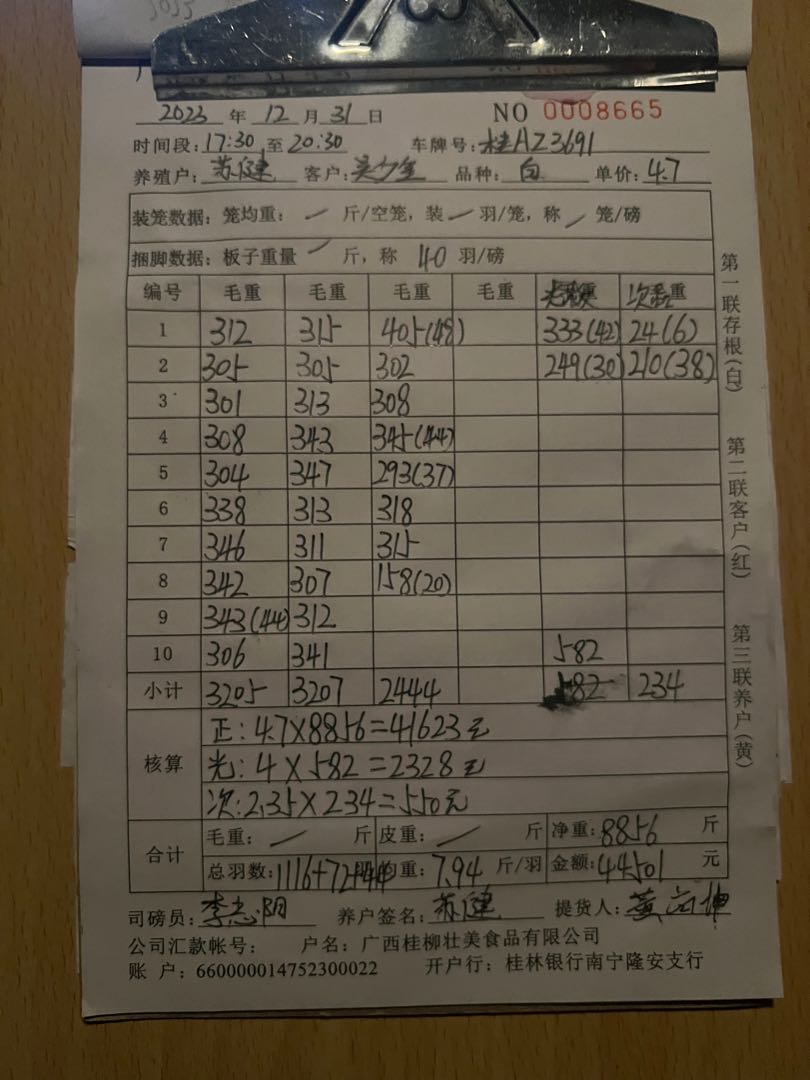 2023 年 12 月 31 日 NO 0008665
时间段: 17:30 至 20:30 车牌号: 桂AZ3691
养殖户: 苏健 客户: 品种: 白 单价: 4.7
装笼数据: 笼均重: / 斤/空笼, 装 / 羽/笼, 称 / 笼/磅
捆脚数据: 板子重量 / 斤, 称 40 羽/磅
编号 毛重 毛重 毛重 毛重 次
1 312 315 405(48) 333(42) 24(6)
2 305 305 302 249(30) 210(38)
3 301 313 308
4 308 343 345(44)
5 304 347 293(37)
6 338 313 318
7 346 311 315
8 342 307 158(20)
9 343(44) 312
10 306 341 582
小计 3205 3207 2444 582 234
核算 正: 4.7×8856=41623元
光: 4×582=2328元
次: 2.35×234=550元
合计 毛重: / 斤 皮重: / 斤 净重: 8856 斤
总羽数: 1116+72+44 均重: 7.94 斤/羽 金额: 44501 元
司磅员: 李志阴 养户签名: 苏健 提货人: 黄
公司汇款帐号: 户名: 广西桂柳壮美食品有限公司
账 户: 660000014752300022 开户行: 桂林银行南宁隆安支行
第一联存根(白)
第二联客户(红)
第三联养户(黄)